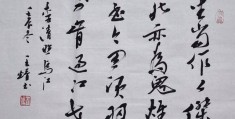 生當作人傑
死亦為鬼雄
至今思項羽
不肯過江東
李清照烏江